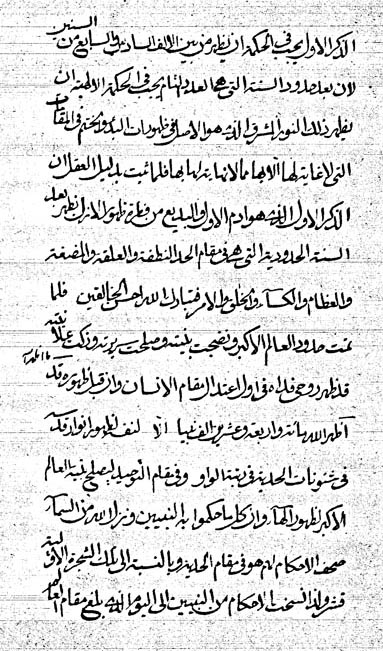 الذكر الاول يجب في الحكمة ان يظهر من بين الالف السادس والسابع من السنين
لان بعد حدود الستة التي هي العدد التام يجب في الحكمة الالهية ان
يظهر ذلك النور المشرق الذي هو الاصل في ظهورات البدء والختم في المقام
التي لا غاية لها الا بها مما لا نهاية لها بها فلما ثبت بدليل العقل ان
الذكر الاول الذي هو ادم الاول والبديع من فطرة ظهور الازل يظهر بعد
الستة الحدودية التي هي في مقام الحد النطفة والعلقة والمضغة
والعظام والكساء والخلق والامر فتبارك الله احسن الخالقين فلما
تمت حدود العالم الاكبر ونضجت بنيته وصلحت بريته وزكت
قد ظهر روحي فداه في اول اعتدال مقام الانسان وان قبل ظهوره قد
اظهر الله مائة واربعة وعشرين الف نبيا لنفسه لظهور انوار قدسه
في شئونات الحدية في رتبة الواو وفي مقام التوحيد ليصلح بنية العالم
الاكبر لظهور الحق وان كل ما حكموا به النبيين ونزل الله من السماء
صحف الاحكام لهم هو في مقام الحدية وبالنسبة الى تلك الشجرة الاولية
قشر ولذا نسخت الاحكام من النبيين الى اليوم الذي بلغ مقام العالم